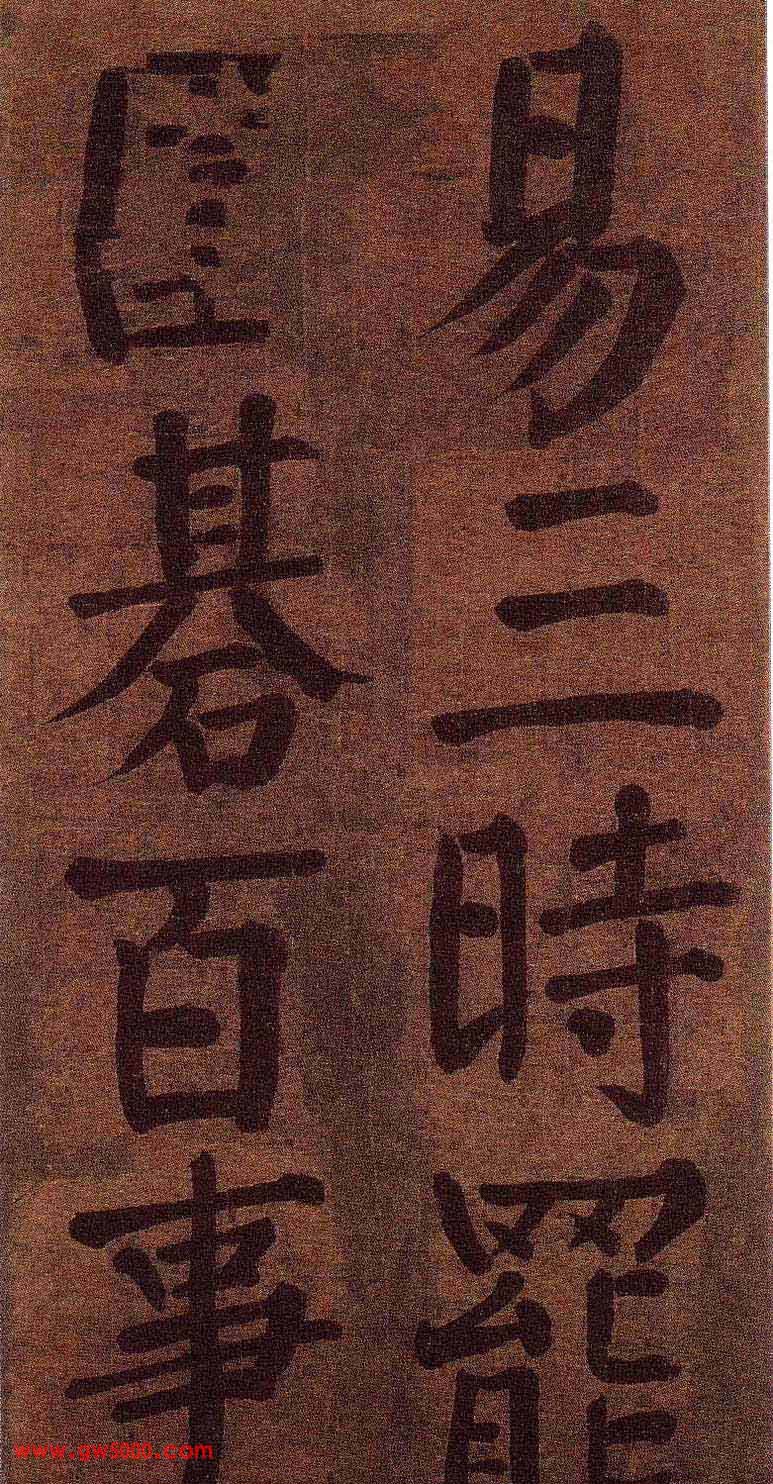 易三時罷
圍碁百事
www.gw5000.com